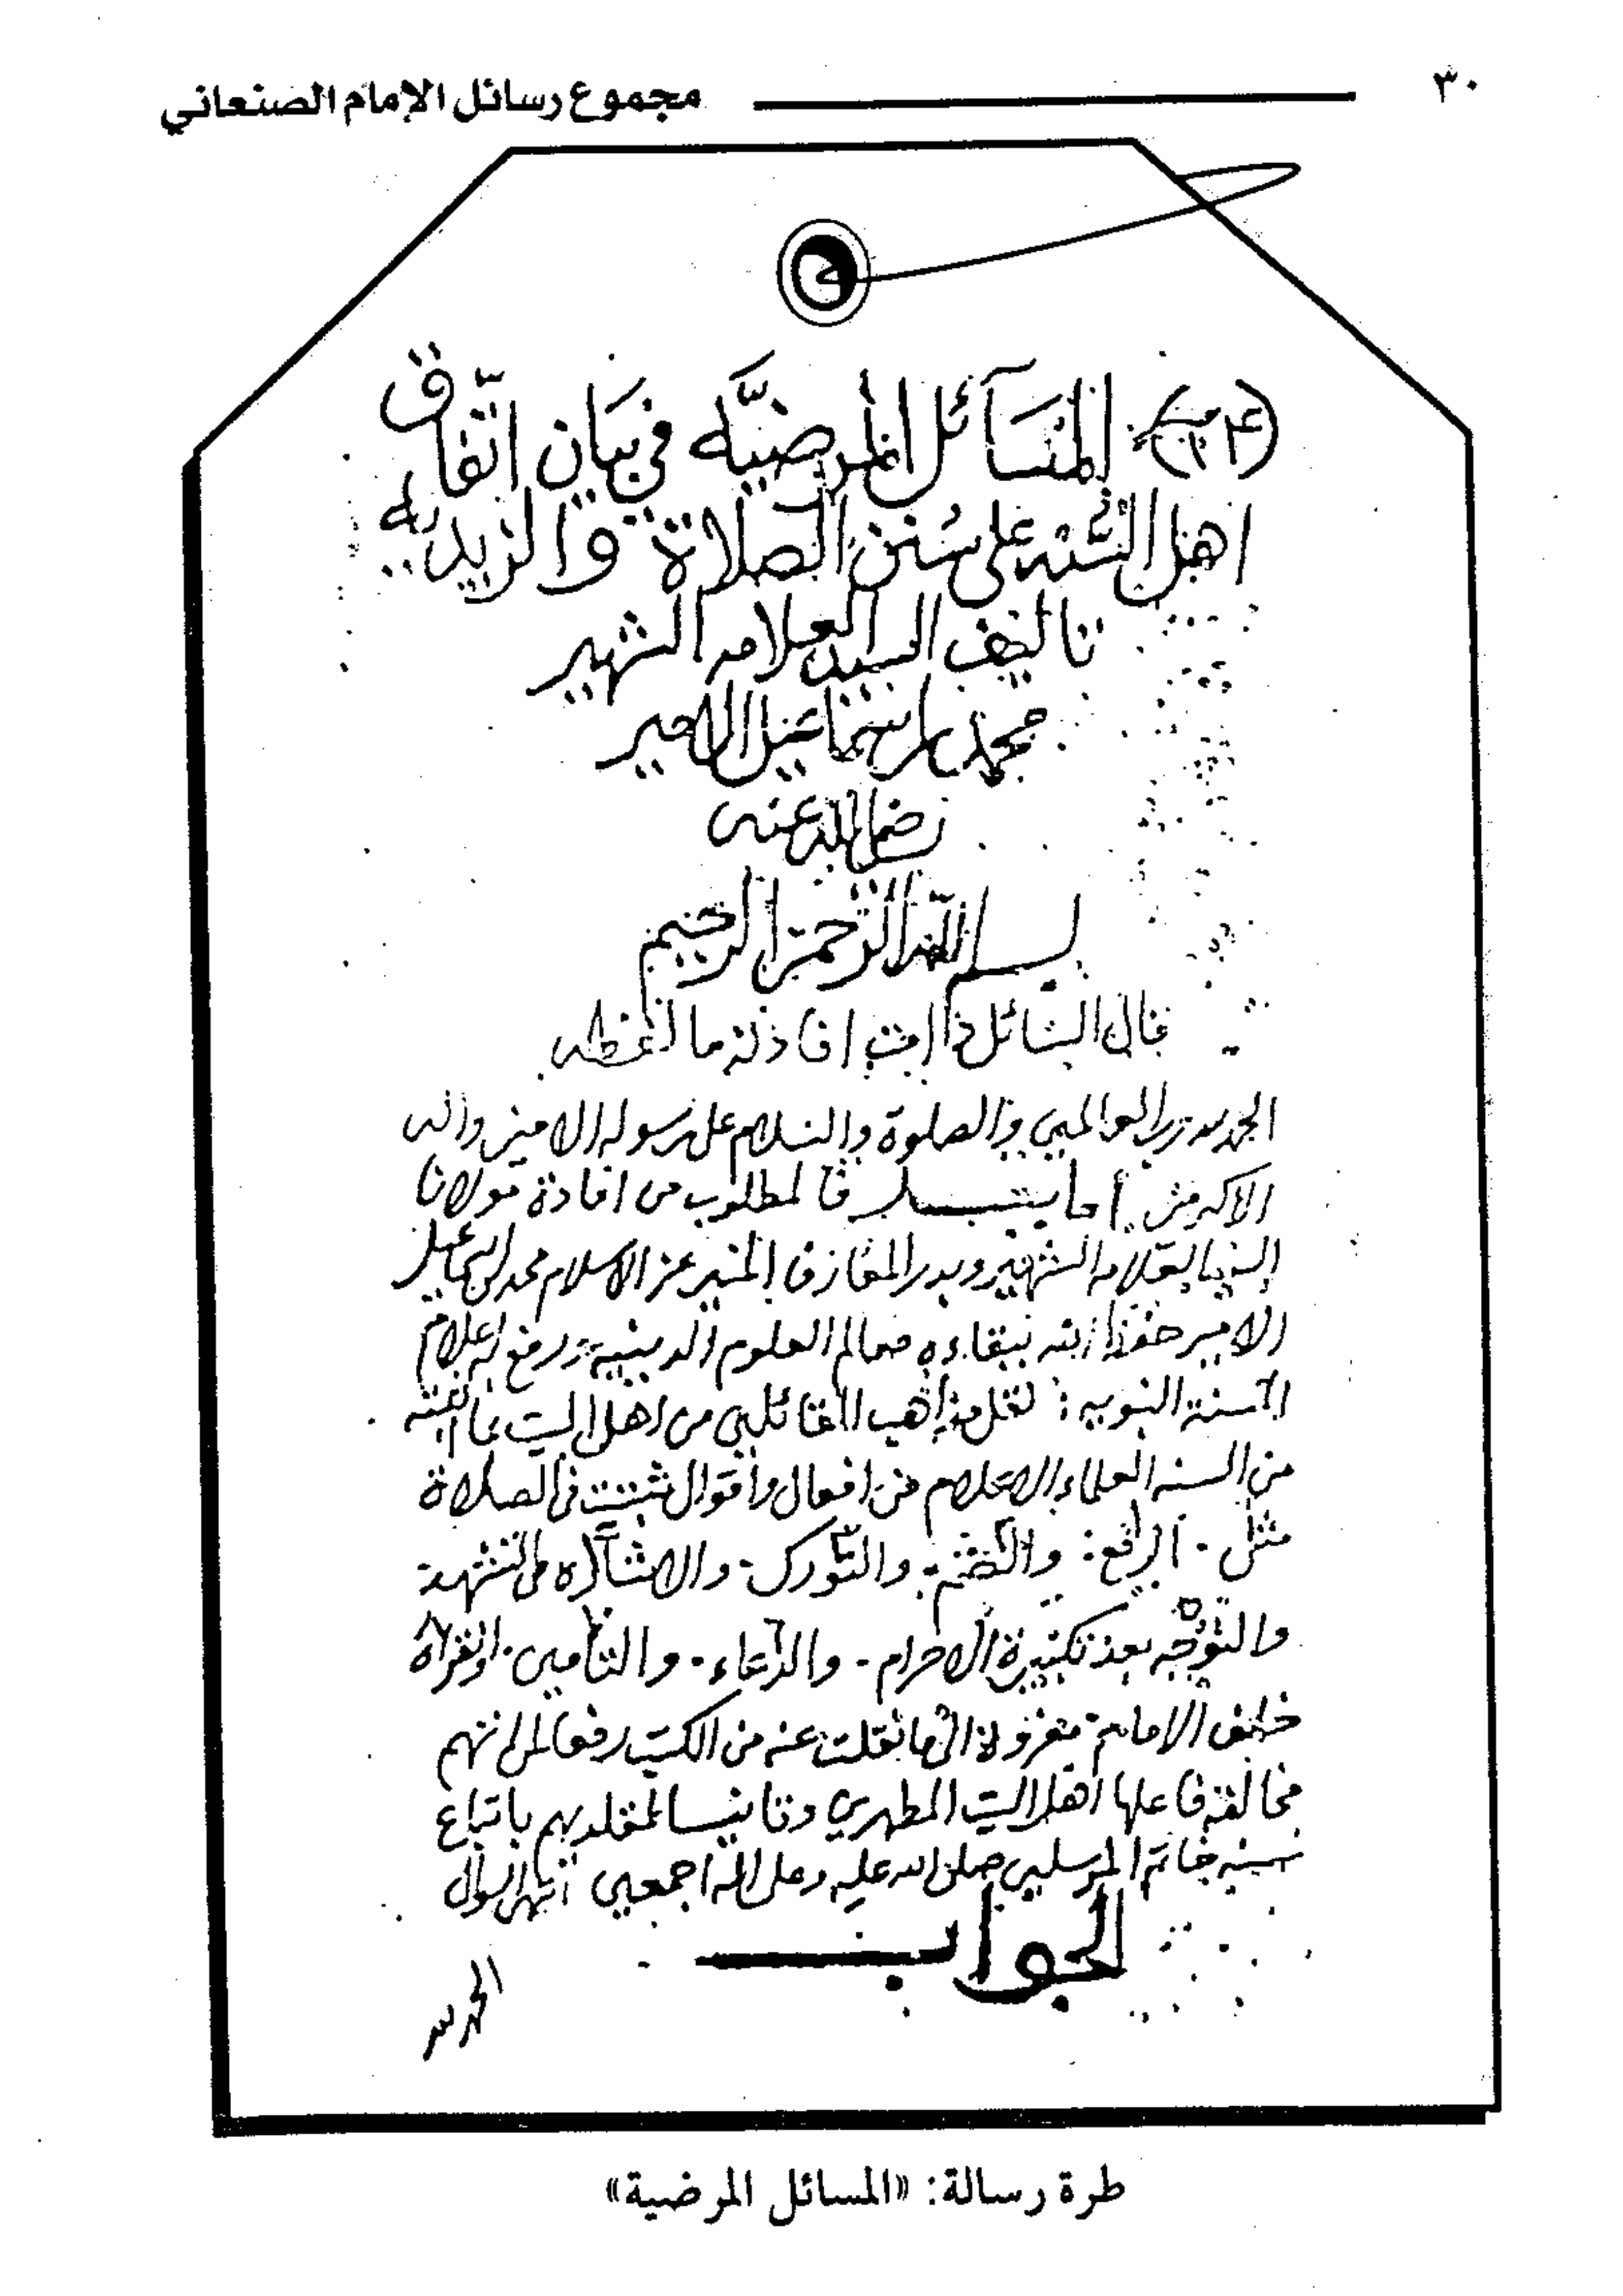 ٣٠
مجموع رسائل الإمام الصنعاني
المسآئل المرضيّه في بيَان اتّفاق
اهل السنه على سُنن الصلاة والزيديه
تاليف السيد العلامه الشهير
محمد بن اسماعيل الامير
رضي الله عنه
بسم الله الرحمن الرحيم
قال السائل دامت افادته ما لفظه
الحمد لله رب العالمين والصلوة والسلام على رسوله الامين واله
الاكرمين أما بعد فالمطلوب من افادة مولانا
العلامه الشهير وبدر المعارف المنير عز الاسلام محمد بن اسماعيل
الامير حفظ الله ببقاءه معالم العلوم الدينيه ورفع به اعلام
السنة النبويه: نقل مذاهب القائلين من اهل البيت بما
من السنه العلماء الاعلام من افعال واقوال ثبتت في الصلاة
مثل - الرفع: والضم: والتورك - والاشاره في التشهد
والتوجه بعد تكبيرة الاحرام - والدعاء - والتامين - او القراة
خلف الامام - معزولة الى ما نقلت عنه من الكتب رفعا لمن
مخالفة فاعلها اهل البيت المطهرين وتانيسا لمقلديهم باتباع
سنه خاتم المرسلين صلى الله عليه وعلى اله اجمعين انتهى السوال
الجواب
الحمد لله
طرة رسالة: «المسائل المرضية»